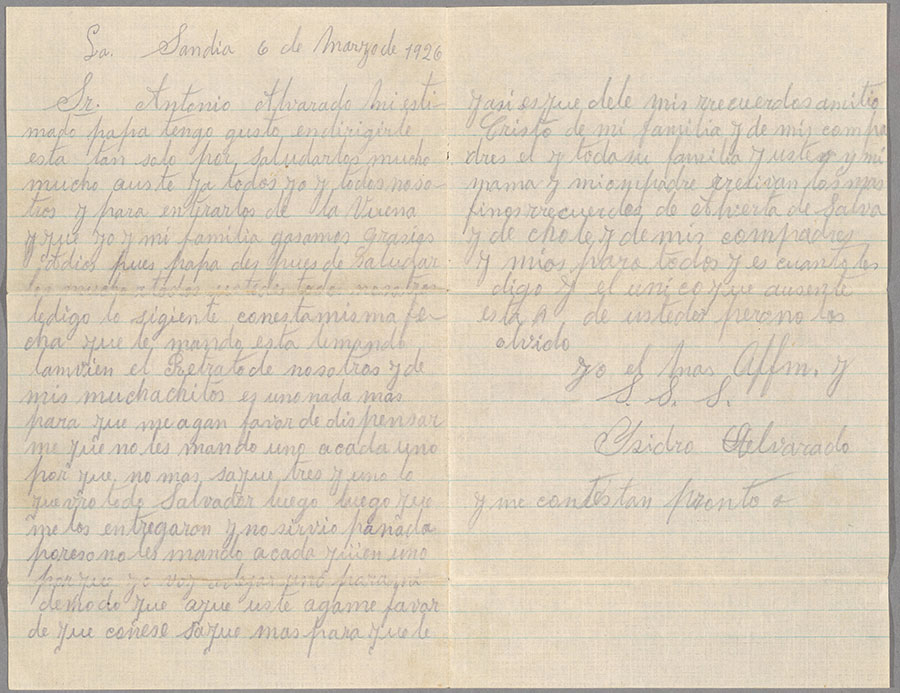 La. Sandia 6 de Marzo de 1926
Sr. Antonio Alvarado Mi esti-
mado papa tengo gusto endirigirle
esta tan solo por saludarlos mucho
mucho auste ya todos yo y todos noso-
tros y para enterarlos de la Vuena
y que yo y mi familia gosamos Grasias
adios pues papa des pues de Saludar
los mucho atodos ustedes todo nosotros
ledigo lo sigiente conesta misma fe-
cha que le mando esta lemando
tamvien el Retrato de nosotros y de
mis muchachitos es uno nada mas
para que me agan favor de dispensar
me que no les mando uno acada uno
por que no mas saque tres y uno lo
de Salvador luego luego que
me los entregaron y no sirvio panada
poreso no les mando acada quien uno
por que yo voy uno para mi
demodo que aque uste agame favor
de que ese saque mas para que le
y asi es que dele mis rrecuerdos amitio
Cristo de mi familia y de mis compa
dres el y toda su familia y uste y mi
mama y micompadre resivan los mas
finos rrecuerdos de Alverta de Salva
y de chole y de mis compadres
y mios para todos y es cuanto les
digo y el unico que ausente
esta de ustedes pero no los
olvido
yo el mas Affm. y
S. S. S.
Ysidro Alvarado
y me contestan pronto